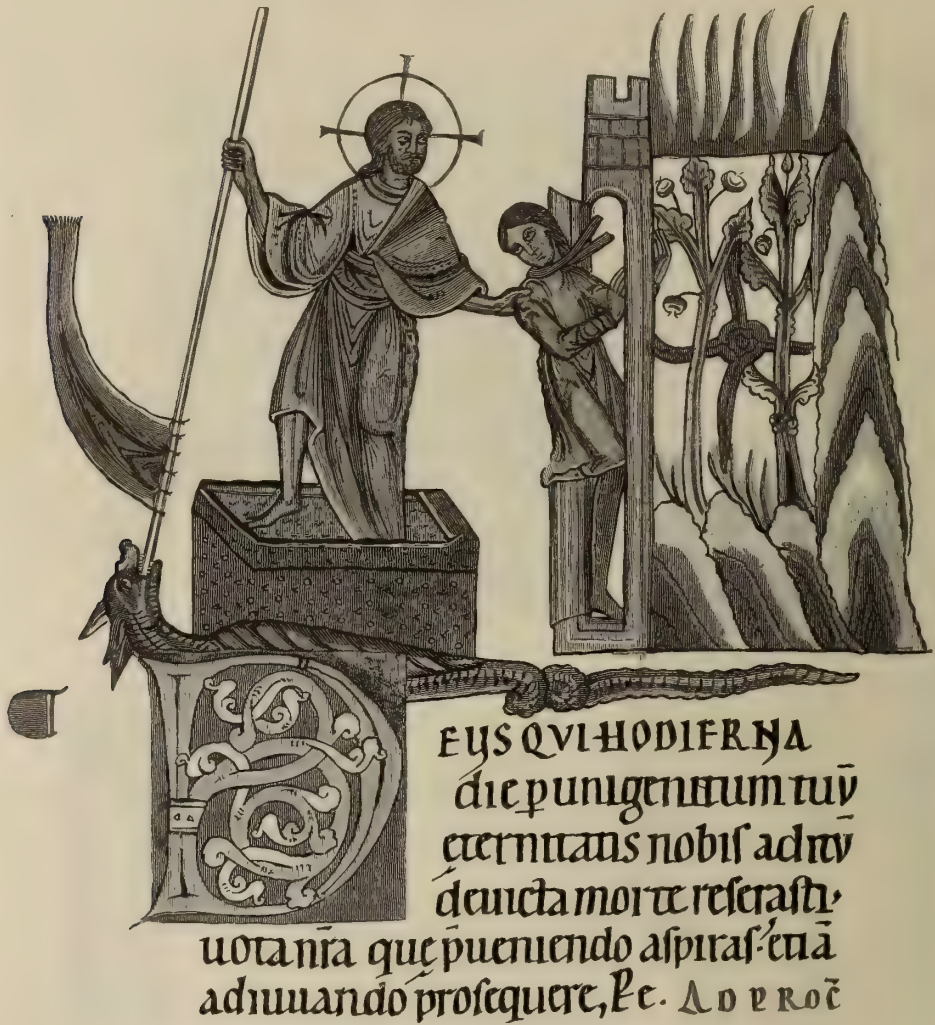 EUS QVI HODIERNA
die p̱ unigenitum tuū
eternitatis nobiſ aditū
deuicta morte reſeraſti·
uota nr̄a que p̄ueniendo aſpiraſ· etiā
adiuuando proſequere, Pe. AD PROC̄